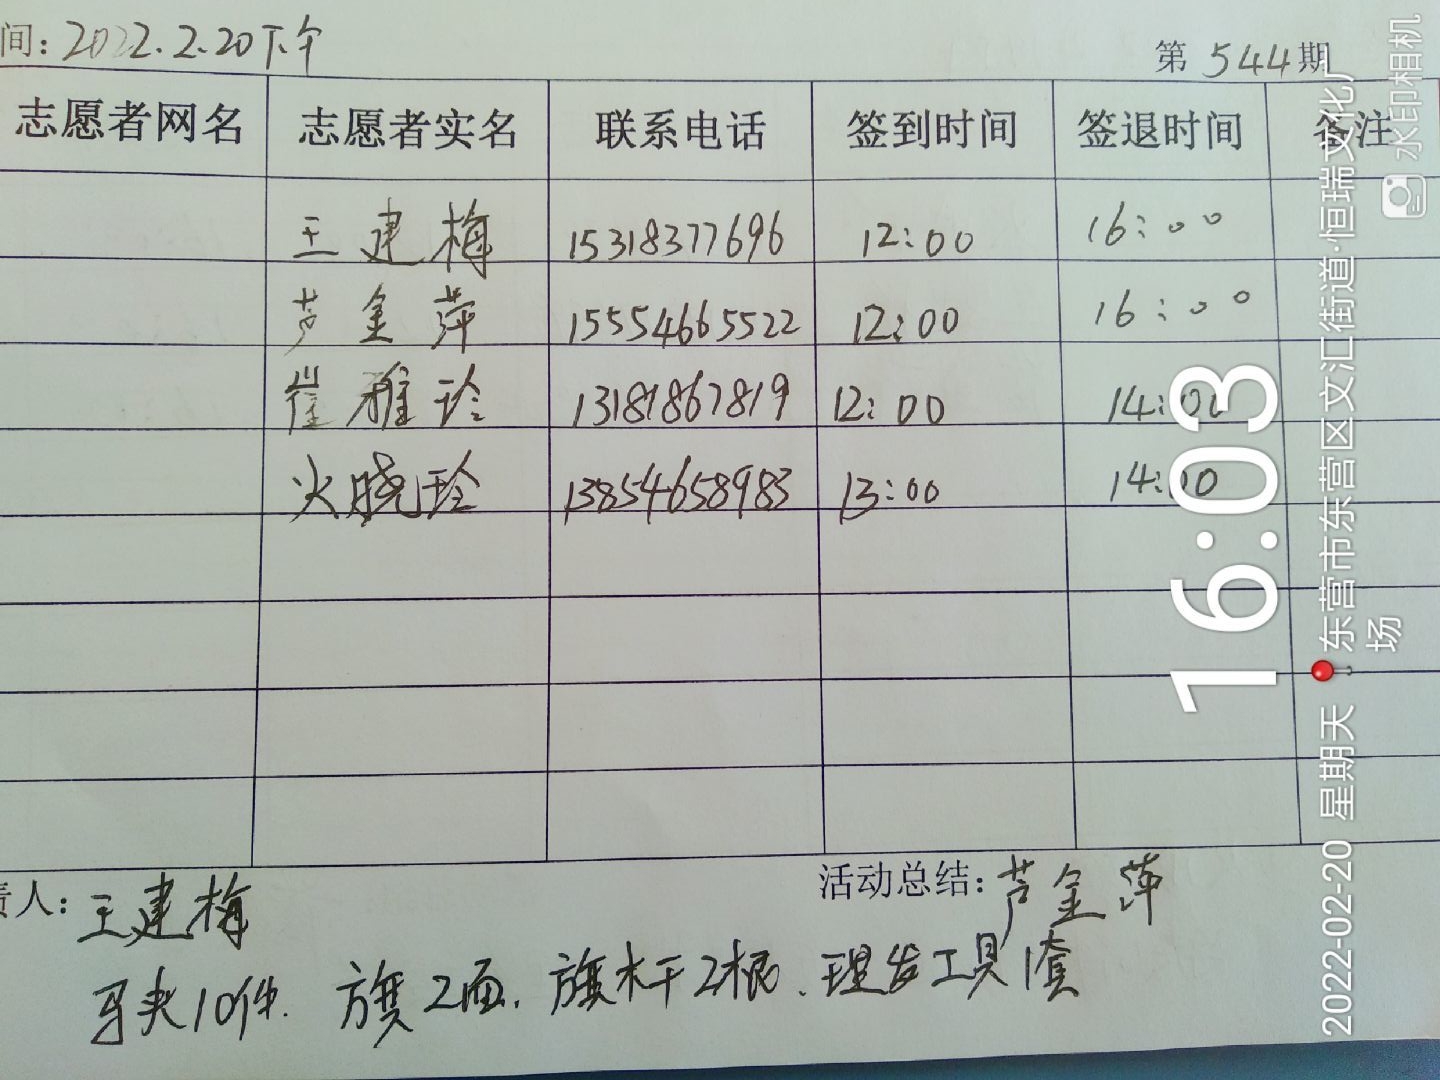 间：2022.2.20下午
第544期
志愿者网名 志愿者实名 联系电话 签到时间 签退时间 备注
王建梅 15318377696 12:00 16:00
芦金萍 15554665522 12:00 16:00
崔雅玲 13181867819 12:00 14:00
火晓玲 13854658983 13:00 14:00
责人：王建梅
活动总结：芦金萍
马夹10件. 旗2面. 旗杆2根、理发工具1套
水印相机
16:03
2022-02-20 星期天 东营市东营区文汇街道·恒瑞文化广
场